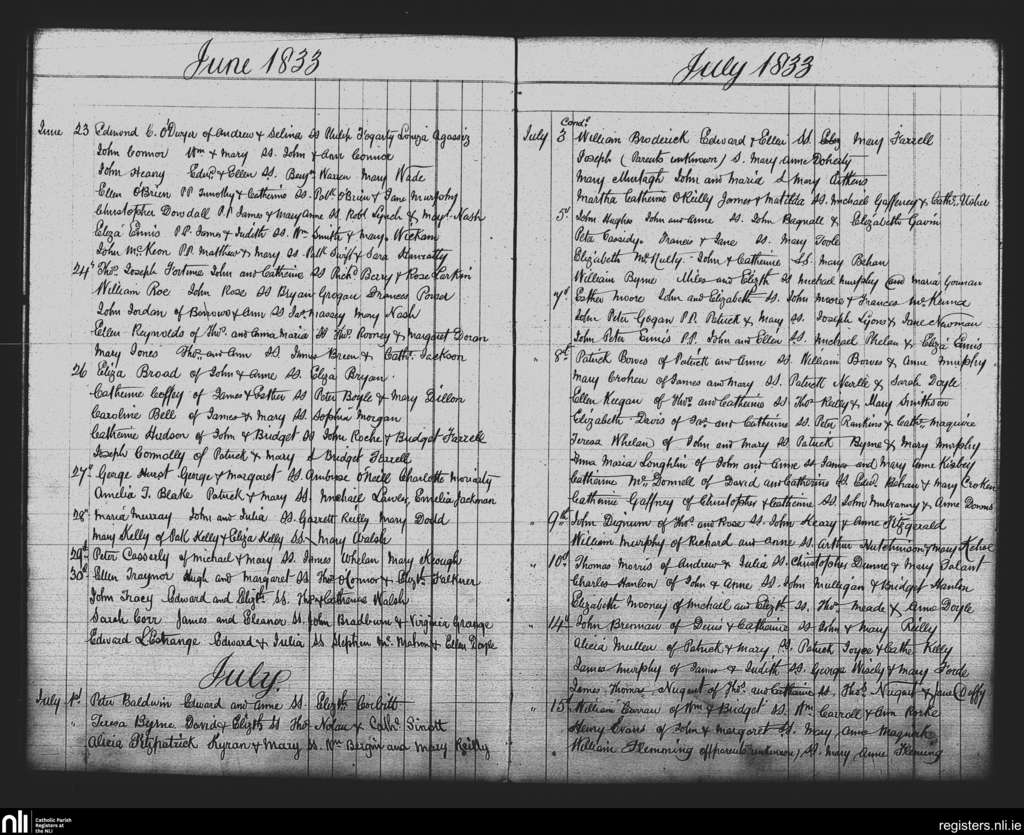 June 1833
June 23 Edmond C. O'Dwyer of Andrew & Selina SS Philip Fogarty Louiza Agassiz
John Connor Wm & Mary SS. John & Ann Connor
John Heary Edwd & Ellen SS. Benjn Warren Mary Wade
Ellen O'Brien PP Timothy & Catherine SS. Patk O'Brien & Jane Murphy
Christopher Dowdall PP James & Mary Anne SS Robt Lynch & Mary Nash
Eliza Ennis PP. James & Judith SS. Wm Smith & Mary
John McKeon PP. Matthew & Mary SS. Patk Swift & Sara
24th Thos Joseph Fortune John and Catherine SS Richd Berry & Rose Larkin
William Roe John Rose SS Bryan Grogan Frances Power
John Jordan of Borrows & Ann SS Jas Massey Mary Nash
Ellen Reynolds of Thos and Anna Maria SS Thos Rooney & Margaret Doran
Mary Jones Thos and Ann SS James Breen & Cathe Jackson
26 Eliza Broad of John & Anne SS. Eliza Bryan
Catherine Coffey of James & Esther SS Peter Boyle & Mary Dillon
Caroline Bell of James & Mary SS. Sophia Morgan
Catherine Hudson of John & Bridget SS John Roche & Bridget Farrell
Joseph Connolly of Patrick & Mary S Bridget Farrell
27th George Hurst George & Margaret SS. Ambrose O'Neill Charlotte Moriarty
Amelia T. Blake Patrick & Mary SS. Michael Emelia Jackman
28th Maria Murray John and Julia SS. Garrett Reilly Mary Dodd
Mary Kelly of Patk Kelly & Eliza Kelly SS. Mary Walsh
29th Peter Casserly of Michael & Mary SS. James Whelan Mary Keough
30th Ellen Traynor Hugh and Margaret SS Thos O'Connor & Elizth Falkner
John Tracy Edward and Elizth SS. Thos & Catherine Walsh
Sarah Corr James and Eleanor SS. John Bradburn & Virginia Grange
Edward L'Estrange Edward & Julia SS Stephen McMahon & Ellen Doyle
July.
July 1st Peter Baldwin Edward and Anne SS. Elizth Corbett
" Teresa Byrne David & Elizth SS Thos Nolan & Cathe Sinott
Alicia Fitzpatrick Kyran & Mary SS. Wm Bergin and Mary Reilly
July 1833
Cond.
July 3 William Broderick Edward & Ellen SS. Mary Farrell
Joseph (Parents unknown) S. Mary Anne Doherty
Mary Murtagh John and Maria S Mary
Martha Catherine O'Reilly James & Matilda SS. Michael Gaffeney & Cathe Usher
5th John Hughes John and Anne SS. John Bagnall & Elizabeth Gavin
Peter Cassidy. Francis & Jane SS. Mary Toole
Elizabeth McNulty John & Catherine SS. Mary Behan
William Byrne Miles and Elizth SS Michael Murphy and Maria Gorman
7th Esther Moore John and Elizabeth SS. John Moore & Frances McKenna
John Peter Gogan PP. Patrick & Mary SS. Joseph Lyons & Jane Newman
John Peter Ennis PP. John and Ellen SS. Michael Phelan & Eliza Ennis
" 8th Patrick Bowes of Patrick and Anne SS. William Bowes & Anne Murphy
Mary of James and Mary SS. Patrick Neville & Sarah Doyle
Ellen Keegan of Thos and Catherine SS Thos Kelly & Mary
Elizabeth Davis of Jas. and Catherine SS. Peter Rankins & Cathe Maguire
Teresa Whelan of John and Mary SS Patrick Byrne & Mary Murphy
Anna Maria Loughlin of John and Anne SS James and Mary Anne Kirby
Catherine McDonnell of David and Catherine SS Edwd Behan & Mary
Catherine Gaffney of Christopher & Catherine SS. John Mulvanny & Anne Downs
" 9th John Dignum of Thos and Rose SS. John Keary & Anne Fitzgerald
William Murphy of Richard and Anne SS. Arthur Hutchinson & Mary Kehoe
" 10th Thomas Morris of Andrew & Julia SS. Christopher Dunne & Mary Talant
Charles Hanlon of John & Anne SS. John Mulligan & Bridget Hanlon
Elizabeth Mooney of Michael and Elizth SS. Thos Meade & Anne Doyle
" 14th John Brennan of Denis & Catherine SS John & Mary Reilly
Alicia Mullen of Patrick & Mary SS. Patrick Joyce & Cathe Kelly
James Murphy of James & Judith SS. George & Mary Forde
James Thomas Nugent of Thos and Catherine SS. Thos Nugent & Jane Duffy
" 15th William Curran of Wm & Bridget SS. Wm Carroll & Ann Rorke
Henry Evans of John & Margaret SS. Mary Anne
" William Flemming of (parents unknown) SS. Mary Anne Fleming
nli
Catholic Parish
Registers at
the NLI
registers.nli.ie